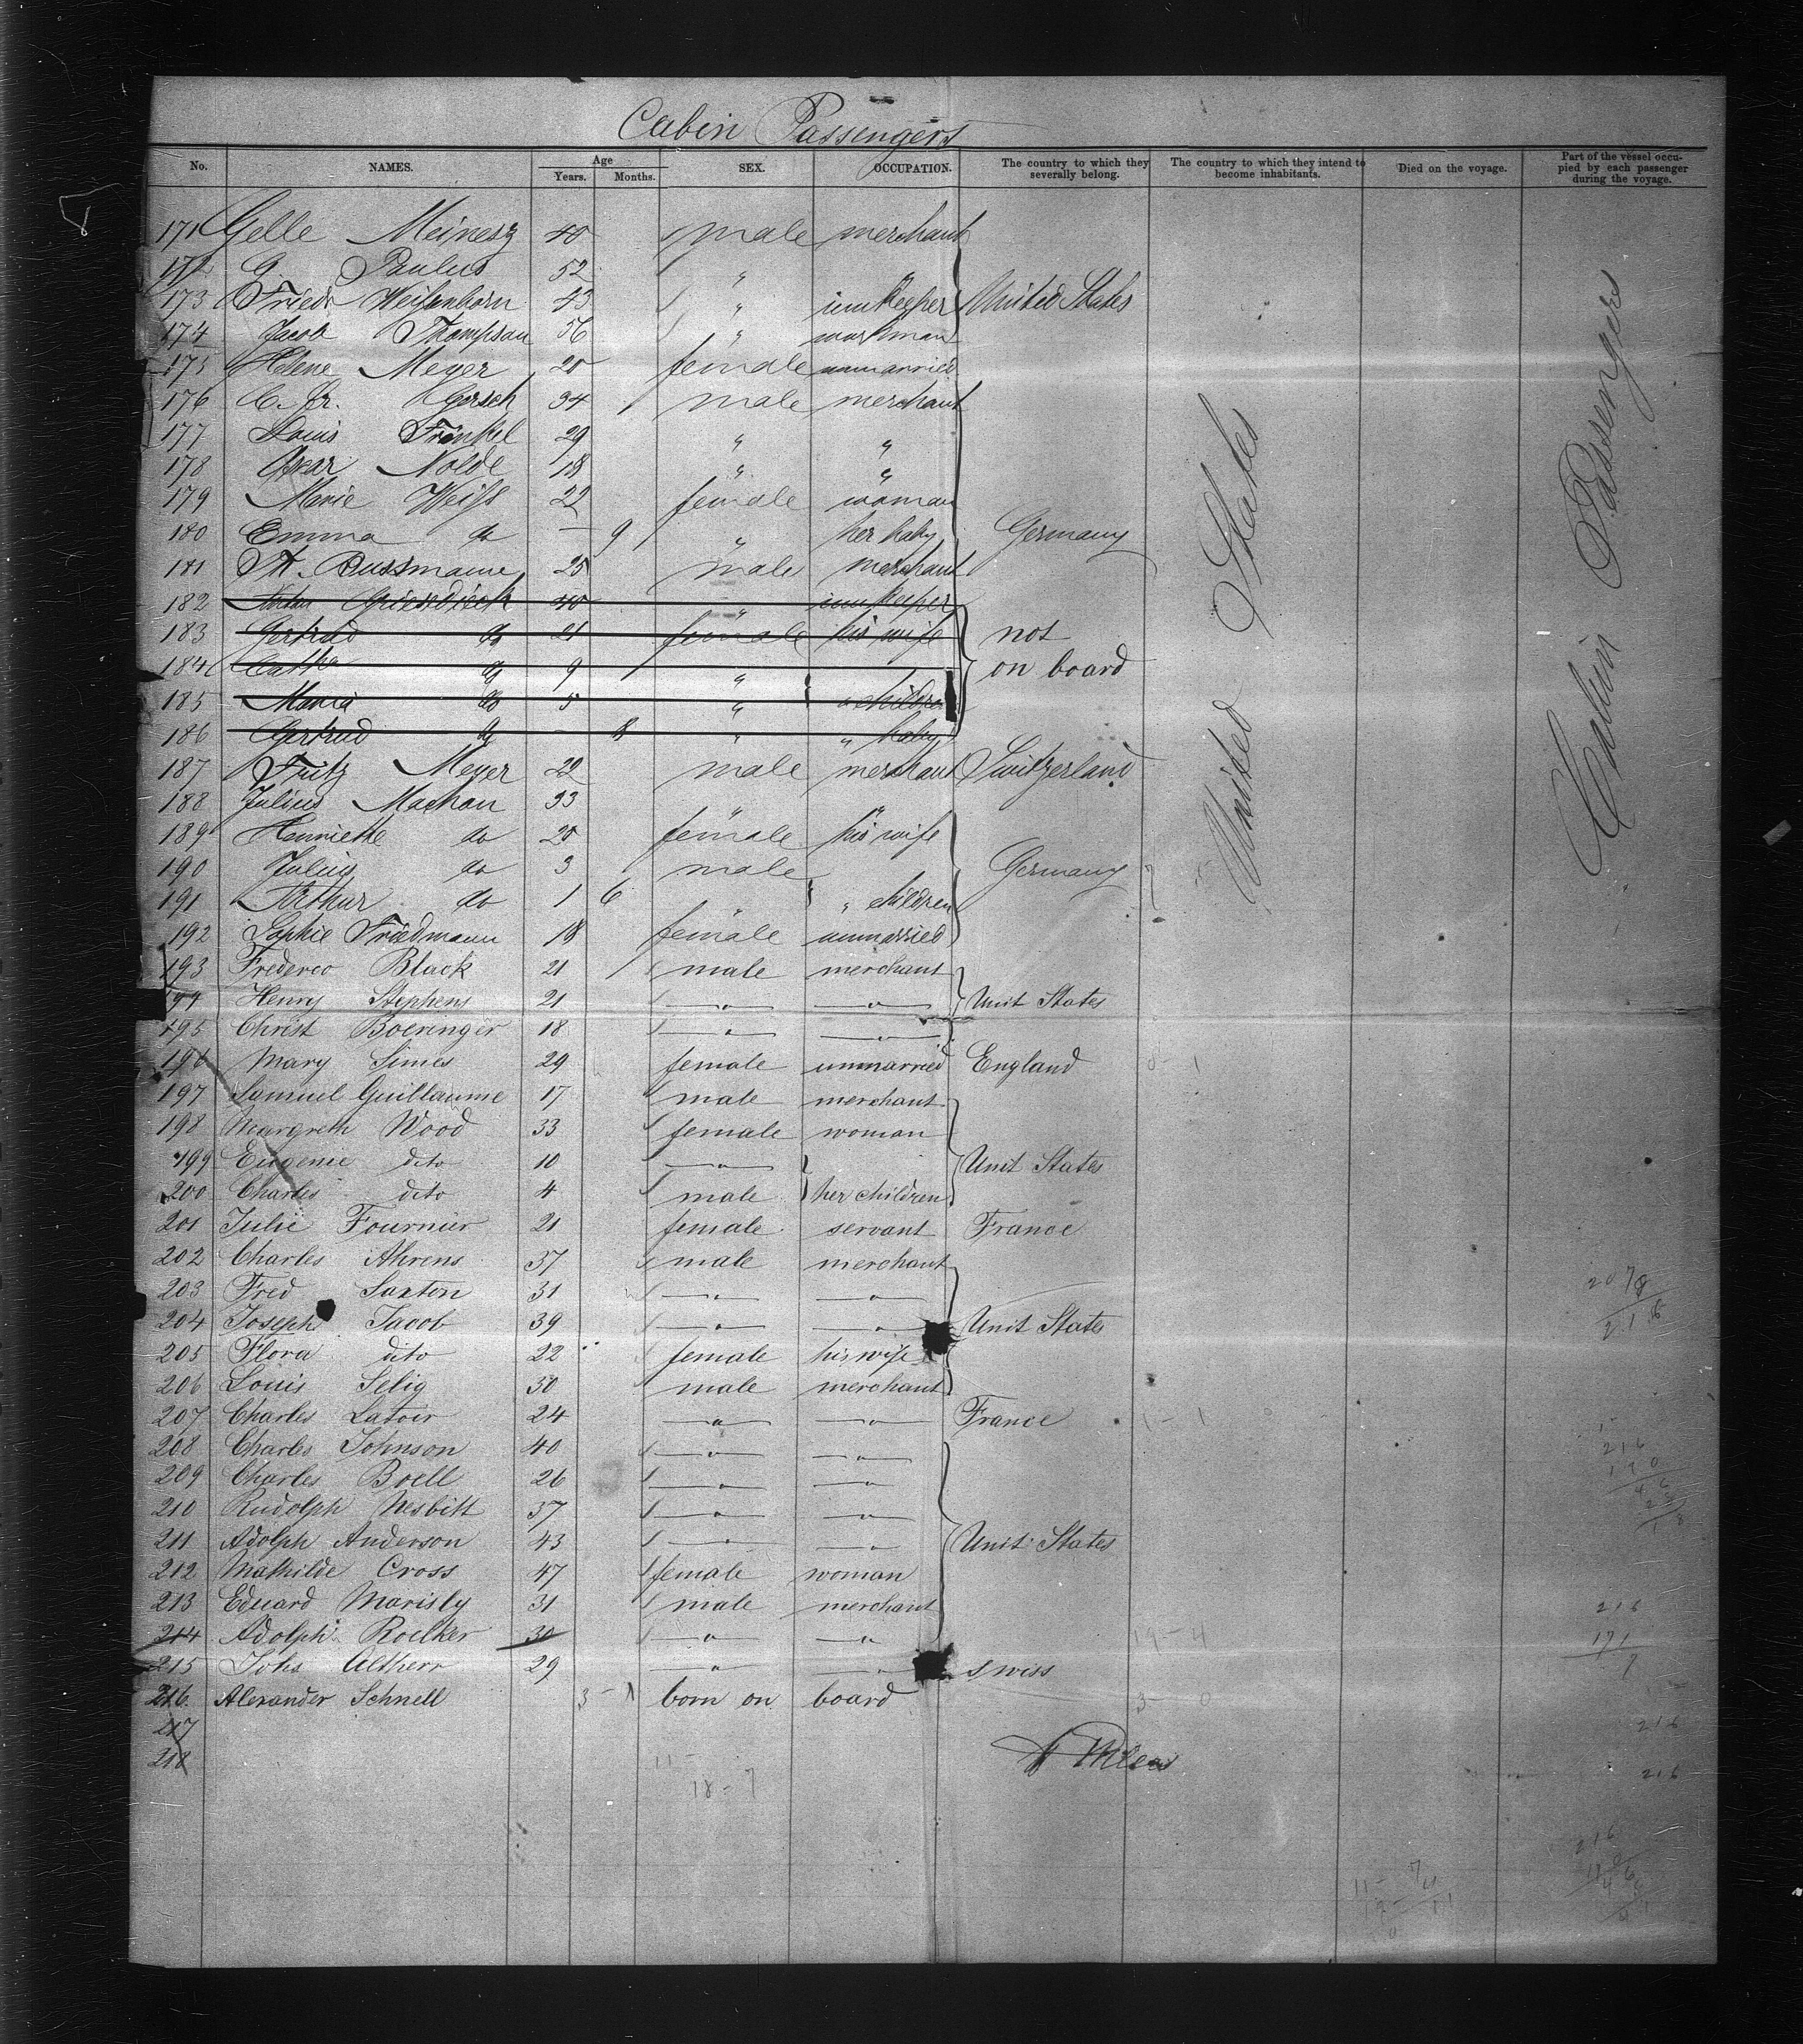 Cabin Passengers
No. NAMES. Age Years. Months. SEX. OCCUPATION. The country to which they severally belong. The country to which they intend to become inhabitants. Died on the voyage. Part of the vessel occupied by each passenger during the voyage.
171 Gelle Meinesz 40 male merchant
172 G. Paulus 52 " "
173 Friedr Weisenborn 43 " innkeeper United States
174 Jacob Thompson 56 " workman
175 Helene Meyer 20 female unmarried
176 C. Fr. Gersch 34 male merchant
177 Louis Fränkel 29 " "
178 Oskar Nolde 18 " "
179 Marie Weiss 22 female woman
180 Emma do — 9 " her baby Germany
181 Th. Bussmann 25 male merchant
182 Anton Griesdieck 40 " innkeeper
183 Gertrud do 21 female his wife not
184 Cath. do 9 " on board
185 Maria do 5 " " children
186 Gertrud do — 8 " " baby
187 Fritz Meyer 22 male merchant Switzerland
188 Julius Machan 33 " "
189 Henriette do 20 female his wife
190 Julius do 3 male Germany
191 Arthur do 1 6 " " children
192 Sophie Friedmann 18 female unmarried
193 Frederco Black 21 male merchant
194 Henry Stephens 21 " " Unit States
195 Christ Boeringer 18 " "
196 Mary Simes 29 female unmarried England
197 Samuel Guillaume 17 male merchant
198 Margreth Wood 33 female woman
199 Eugenie dito 10 " Unit States
200 Charles dito 4 male her children
201 Julie Fournier 21 female servant France
202 Charles Ahrens 37 male merchant
203 Fred Saxton 31 " "
204 Joseph Jacob 39 " " Unit States
205 Flora dito 22 female his wife
206 Louis Selig 30 male merchant
207 Charles Latour 24 " " France
208 Charles Johnson 40 " "
209 Charles Boell 26 " "
210 Rudolph Nesbitt 37 " "
211 Adolph Anderson 43 " " Unit States
212 Mathilde Cross 47 female woman
213 Eduard Morisly 31 male merchant
214 Adolph Roelker 30 " "
215 Johs Altherr 29 " " Swiss
216 Alexander Schnell born on board
217
218
United States
Cabin Passengers
18-7
216
171
216
216